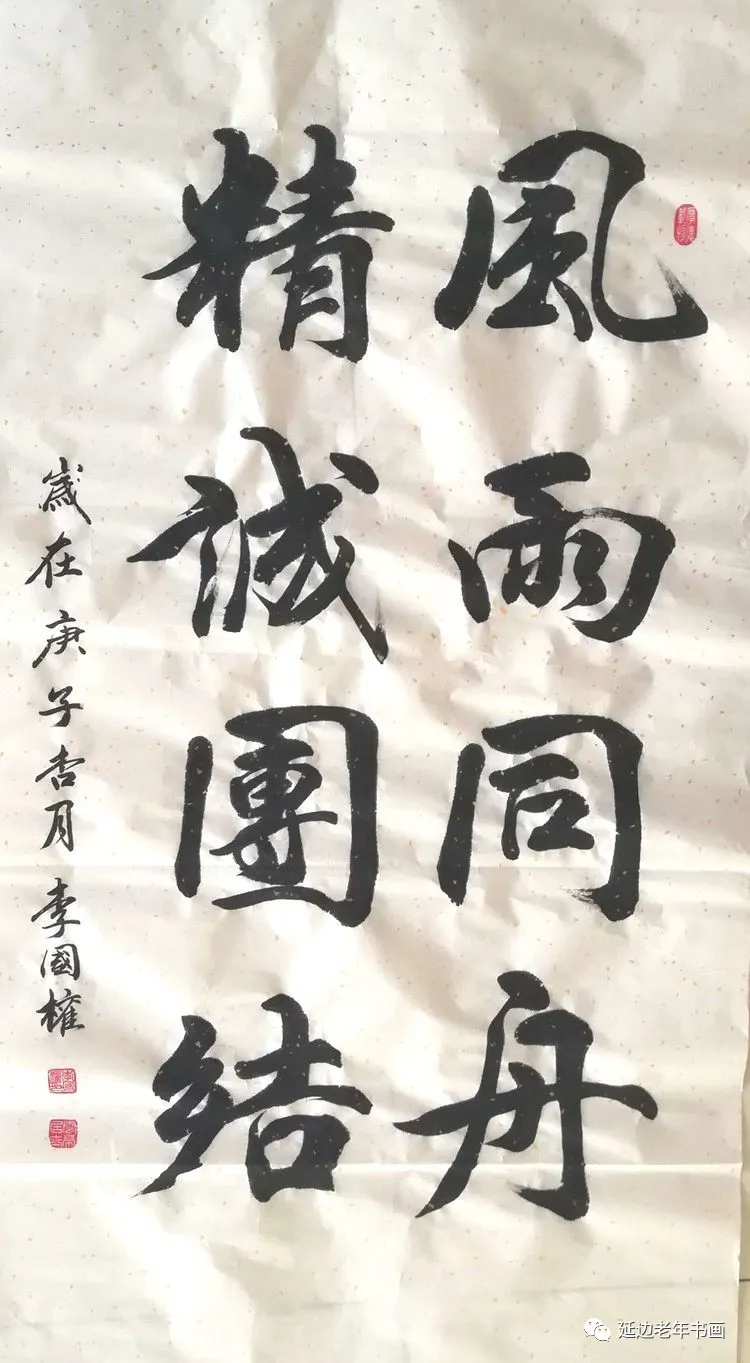 風雨同舟
精誠團結
歲在庚子杏月 李國權
延边老年书画